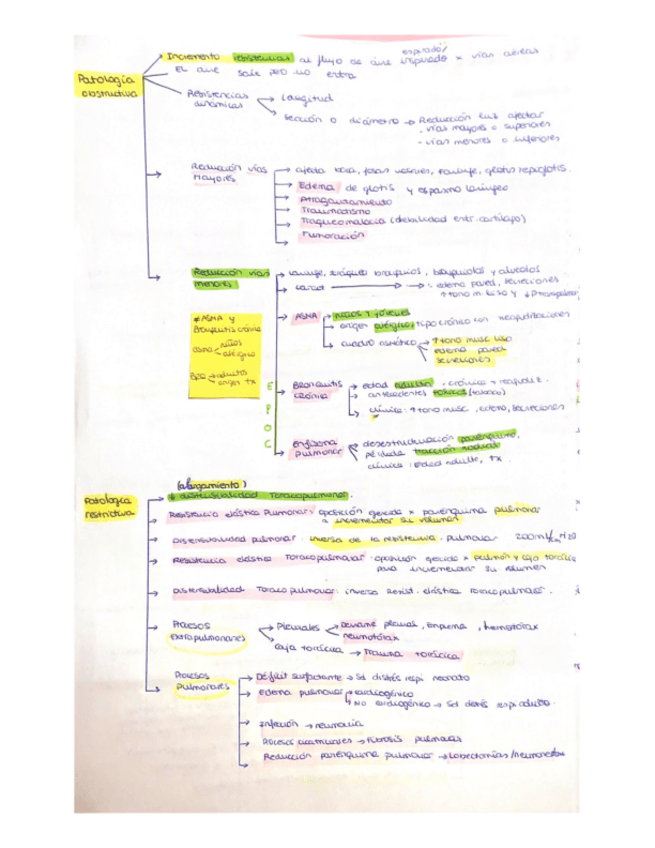 Patología obstructiva
Incremento resistencias al flujo de aire inspirado x vías aéreas
espirado/
El aire sale pero no entra
Resistencias dinámicas
Longitud
Sección o diámetro → Reducción
afectar
- vías mayores o superiores
- vías menores o inferiores
Reducción vías Mayores
afecta boca, fosas nasales, faringe, glotis
Edema de glotis y espasmo laríngeo
Atragantamiento
Traumatismo
Traqueomalacia (debilidad
cartílago)
Tumoración
Reducción vías menores
bronquios, bronquiolos y alveolos
edema pared, secreciones
↑ tono m. liso y ↓
# ASMA y Bronquitis crónica
asma
niños
alérgico
adultos
origen tx
EPOC
ASMA
niños y jóvenes
origen alérgico, tipo crónico con reagudizaciones
cuadro asmático
↑ tono musc liso
edema pared
secreciones
Bronquitis crónica
edad adulta · crónica + reagudiz.
antecedentes tóxicos (tabaco)
clínica: ↑ tono musc, edema, secreciones
Enfisema pulmonar
desestructuración parénquima,
pérdida tracción radial
clínica: edad adulta, tx.
Patología restrictiva
(alargamiento)
↓ distensibilidad Toracopulmonar.
Resistencia elástica Pulmonar: oposición ejercida x parénquima pulmonar a incrementar su volumen
Distensibilidad pulmonar: inversa de la resistencia pulmonar 200ml/cmH20
Resistencia elástica Toracopulmonar: oposición ejercida x pulmón y caja torácica para incrementar su volumen
Distensibilidad Toracopulmonar: inversa Resist. elástica toracopulmonar.
Procesos Extrapulmonares
Pleurales
Derrame pleural, empiema, hemotórax
neumotórax
Caja torácica → Trauma torácica
Procesos Pulmonares
Déficit surfactante → Sd distrés respi neonato
Edema pulmonar
cardiogénico
No cardiogénico → Sd distrés respi adulto.
Infección → neumonía
Procesos cicatriciales → fibrosis pulmonar
Reducción parénquima pulmonar → Lobectomías/